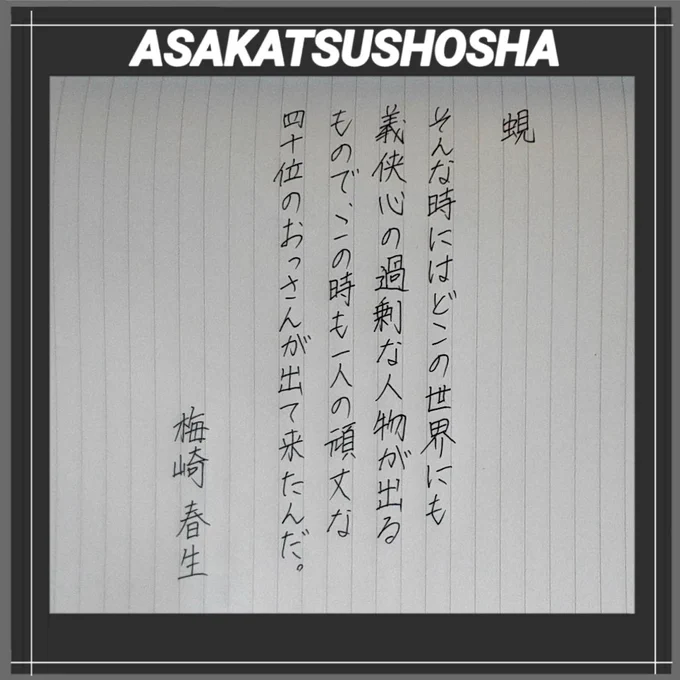 ASAKATSUSHOSHA
蜆
そんな時にはどこの世界にも
義侠心の過剰な人物が出る
もので、この時も一人の頑丈な
四十位のおっさんが出て来たんだ。
梅崎春生